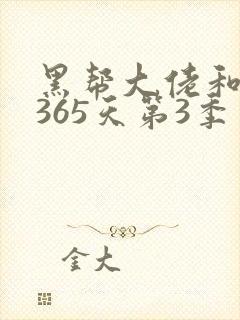 黑帮大佬和
365天第3季
金大